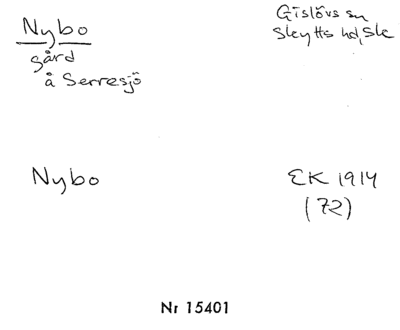 Nybo
Gislövs sn
Skytts hd, Sk
gård
å Serresjö
Nybo
EK 1914
(72)
Nr 15401